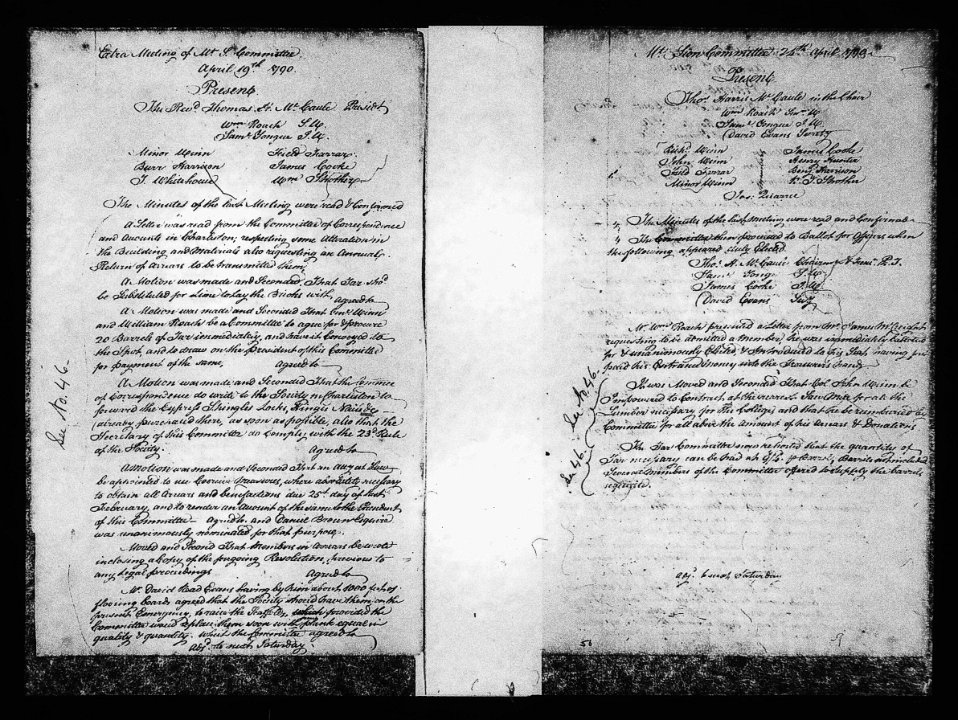 Extra Meeting of Mt. S. Committee
April 19th 1790.
Present
The Revd. Thomas H. McCaule Presidt
Wm Roach S.W.
Saml. Tongue J.W.
Minor Winn
Burr Harrison James Cooke
J. Whitehouse Wm Strother
The Minutes of the last Meeting were read & Confirmed
A Letter was read from the Committee of Correspondence
and accounts in Charleston, respecting some alteration in
the Building and Materials also requesting an Annual
Return of arrears to be transmitted them
A Motion was made and Seconded That Tar shod.
be Substituted for Lime to lay the Bricks with, agreed to
A Motion was made and Seconded That Winn
and William Roach be a Committee to agree for & procure
20 Barrels of Tar immediately, and have it Conveyed to
the Spot, and to draw on the President of this Committee
for payment of the same, agreed to
A Motion was made and Seconded That the Committee
of Correspondence do write to the Society in Charleston to
forward the Cypress Shingles Locks, Hinges Nails &c
already purchased there, as soon as possible, also that the
Secretary of this Committee do Comply with the 23d Rule
of the Society. Agreed to
A Motion was made and Seconded That an
be appointed to use where necessary
to obtain all arrears and benefactions due 25th day of last
February, and to render an account of the same to the President
of this Committee — agreed to and Daniel Brown Esquire
was unanimously nominated for that purpose
Moved and Second That Members in arrears be wrote
inclosing a Copy of the foregoing Resolution, previous to
any legal proceedings Agreed to
Mr. David Road Evans having by him about 1000 feet of
flooring boards agreed that the Society should have them on the
present Emergency, to raise the Scaffolds, provided the
Committee would replace them soon with plank equal in
quality & quantity, which the Committee agreed to
adjd. to next Saturday
See No. 46.
Mt. Zion Committee 24th April
Present
Thos. Harris McCaule in the Chair
Wm Roach Senr. W
Saml. Tongue J.W.
David Evans Secrety
Richd. Winn James Cooke
John Winn Henry Hunter
Benj. Harrison
Minor Winn Strother
The Minutes of the last meeting were read and Confirmed
The Committee then proceeded to Ballot for Officers when
the following appeared duly Elected
Thos. H. McCaule
Saml. Tongue S.W.
James Cooke J.W.
David Evans Secy
Mr. Wm Roach presented a Letter from Mr. James
requesting to be admitted a Member, he was immediately balloted
for & unanimously Elected, & Introduced to his Seat having pre
paid his Entrance money into the Treasurers hands
It was Moved and Seconded That Col. John Winn be
Empowered to Contract, at the nearest Saw Mill for all the
Lumber necessary for the College and that he be reimbursed by
Committee for all above the amount of his arrears & Donations
The Tar Committee reported that the quantity of
Tar necessary can be had at
Several members of the Committee offered to supply the barrels
requisite.
See No. 46
See 46.
adjd. to next Saturday
50